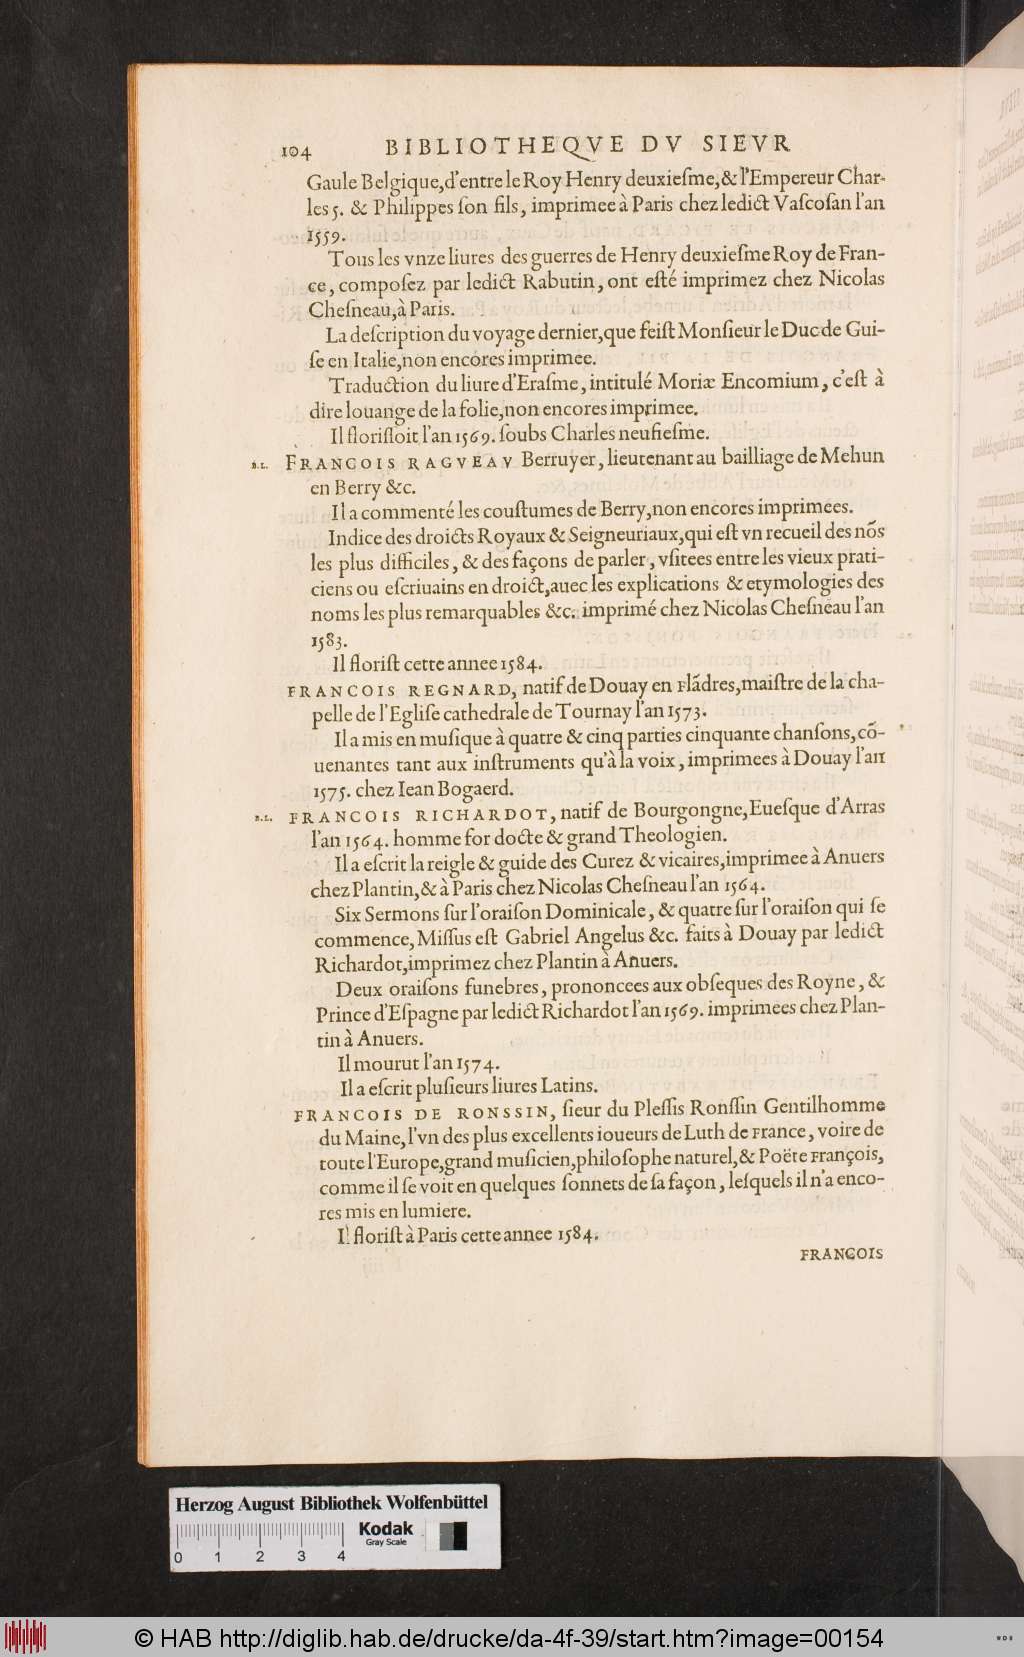 104 BIBLIOTHEQVE DV SIEVR
Gaule Belgique,d'entre le Roy Henry deuxieſme,& l'Empereur Char-
les 5. & Philippes ſon fils, imprimee à Paris chez ledict Vaſcoſan l'an
1559.
Tous les vnze liures des guerres de Henry deuxieſme Roy de Fran-
ce, compoſez par ledict Rabutin, ont eſté imprimez chez Nicolas
Cheſneau,à Paris.
La deſcription du voyage dernier,que feiſt Monſieur le Duc de Gui-
ſe en Italie,non encores imprimee.
Traduction du liure d'Eraſme, intitulé Moriæ Encomium, c'eſt à
dire louange de la folie,non encores imprimee.
Il floriſſoit l'an 1569. ſoubs Charles neufieſme.
B.L. FRANCOIS RAGVEAV Berruyer, lieutenant au bailliage de Mehun
en Berry &c.
Il a commenté les couſtumes de Berry,non encores imprimees.
Indice des droicts Royaux & Seigneuriaux,qui eſt vn recueil des nõs
les plus difficiles, & des façons de parler, vſitees entre les vieux prati-
ciens ou eſcriuains en droict,auec les explications & etymologies des
noms les plus remarquables &c. imprimé chez Nicolas Cheſneau l'an
1583.
Il floriſt cette annee 1584.
FRANCOIS REGNARD, natif de Douay en Flãdres,maiſtre de la cha-
pelle de l'Egliſe cathedrale de Tournay l'an 1573.
Il a mis en muſique à quatre & cinq parties cinquante chanſons,cõ-
uenantes tant aux inſtruments qu'à la voix, imprimees à Douay l'an
1575. chez Iean Bogaerd.
B.L. FRANCOIS RICHARDOT, natif de Bourgongne,Eueſque d'Arras
l'an 1564. homme for docte & grand Theologien.
Il a eſcrit la reigle & guide des Curez & vicaires,imprimee à Anuers
chez Plantin,& à Paris chez Nicolas Cheſneau l'an 1564.
Six Sermons ſur l'oraiſon Dominicale, & quatre ſur l'oraiſon qui ſe
commence, Miſſus eſt Gabriel Angelus &c. faits à Douay par ledict
Richardot,imprimez chez Plantin à Anuers.
Deux oraiſons funebres, prononcees aux obſeques des Royne, &
Prince d'Eſpagne par ledict Richardot l'an 1569. imprimees chez Plan-
tin à Anuers.
Il mourut l'an 1574.
Il a eſcrit pluſieurs liures Latins.
FRANCOIS DE RONSSIN, ſieur du Pleſſis Ronſſin Gentilhomme
du Maine, l'vn des plus excellents ioueurs de Luth de France, voire de
toute l'Europe,grand muſicien,philoſophe naturel,& Poëte François,
comme il ſe voit en quelques ſonnets de ſa façon, leſquels il n'a enco-
res mis en lumiere.
Il floriſt à Paris cette annee 1584.
FRANCOIS
Herzog August Bibliothek Wolfenbüttel
Kodak
Gray Scale
0 1 2 3 4
© HAB http://diglib.hab.de/drucke/da-4f-39/start.htm?image=00154